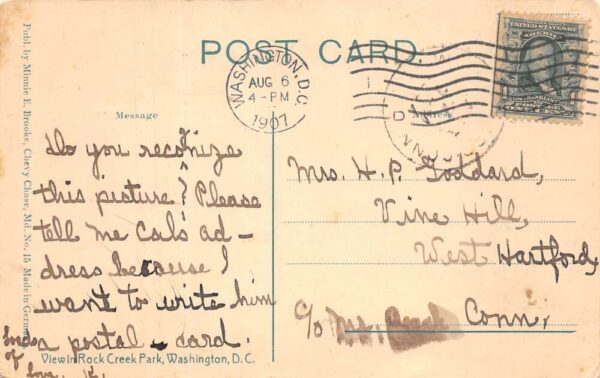 POST CARD.
WASHINGTON, D.C.
AUG 6
4-PM
1907
Message
Do you recognize
this picture? Please
tell me Cal's ad-
dress because I
want to write him
a postal-card.
Lots
of
love. K.
Mrs. H. P. Goddard,
Vine Hill,
West Hartford,
Conn.
c/o Mrs.
View in Rock Creek Park, Washington, D.C.
Publ. by Minnie E. Brooke, Chevy Chase, Md. No. 15 Made in Germany